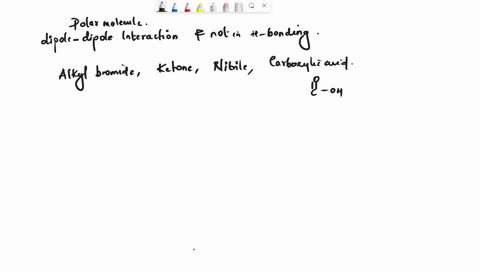 Polar molecule.
dipole-dipole Interaction & not in H-bonding.
Alkyl bromide, Ketone, Nitrile, Carboxylic acid.
O
C-OH